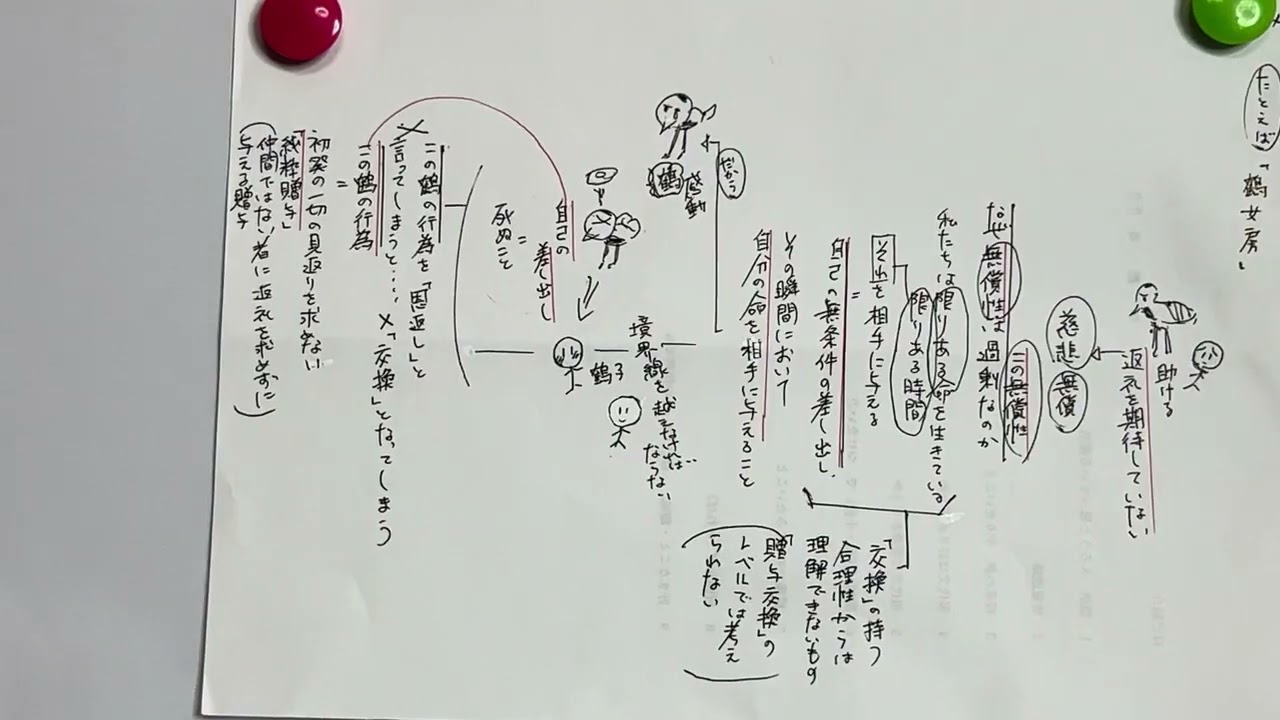 たとえば「鶴女房」
助ける
返礼を期待していない
慈悲 無償
この無償性
なぜ無償性は過剰なのか
私たちは限りある命を生きている
限りある時間
それを相手に与える
=
自己の無条件の差し出し
その瞬間において
自分の命を相手に与えること
「交換」の持つ
合理性からは
理解できないもの
「贈与交換」の
レベルでは考え
られない
だから
鶴 感動
境界線を越えなければ
ならない
鶴子
自己の
差し出し
=
死ぬこと
この鶴の行為を「恩返し」と
言ってしまうと…. ×「交換」となってしまう
この鶴の行為
=
初発の一切の見返りを求めない
「純粋贈与」
(仲間ではない者に返礼を求めずに
与える贈与)